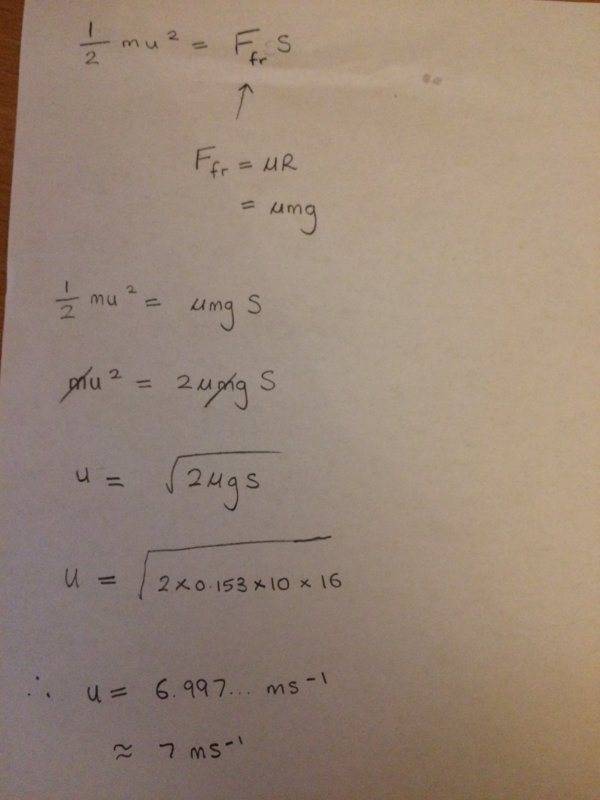 1/2 mu² = F_fr S
↑
F_fr = μR
= μmg
1/2 mu² = μmg S
mu² = 2μmg S
u = √(2μgs)
u = √(2×0.153×10×16)
∴ u = 6.997... ms⁻¹
≈ 7 ms⁻¹